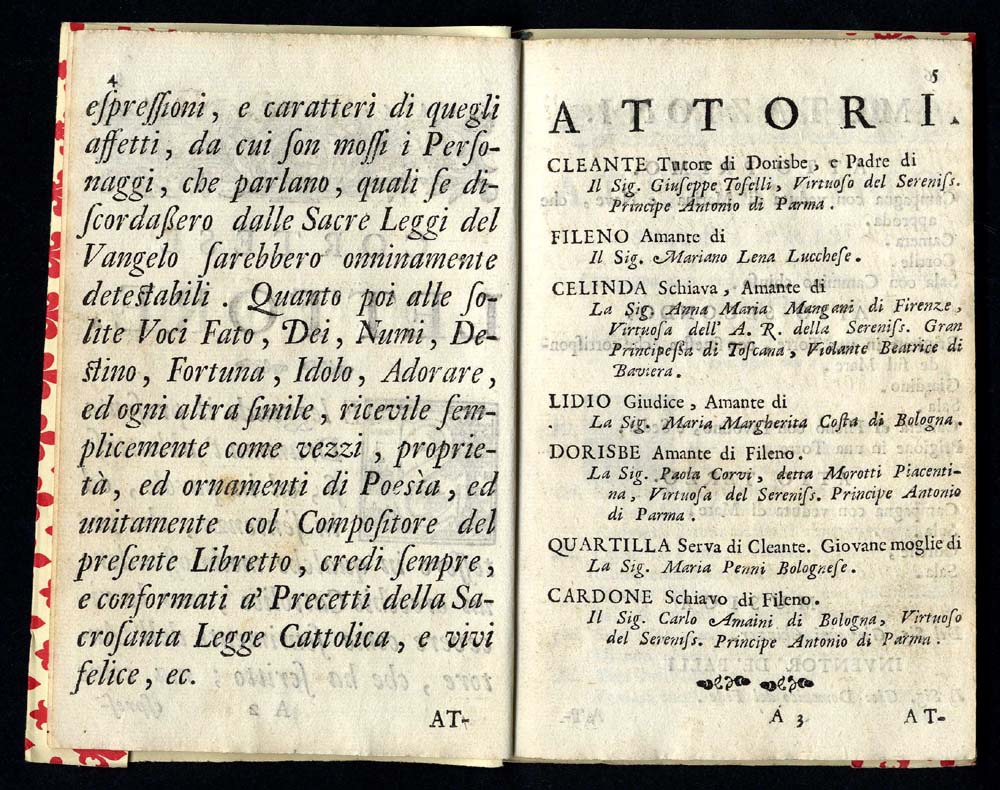 4
eſpreſſioni, e caratteri di quegli
affetti, da cui ſon moſſi i Perſo-
naggi, che parlano, quali ſe di-
ſcordaßero dalle Sacre Leggi del
Vangelo ſarebbero onninamente
deteſtabili. Quanto poi alle ſo-
lite Voci Fato, Dei, Numi, De-
ſtino, Fortuna, Idolo, Adorare,
ed ogni altra ſimile, ricevile ſem-
plicemente come vezzi, proprie-
tà, ed ornamenti di Poesìa, ed
unitamente col Compoſitore del
preſente Libretto, credi ſempre,
e conformati a' Precetti della Sa-
croſanta Legge Cattolica, e vivi
felice, ec.
AT-
5
ATTORI.
CLEANTE Tutore di Dorisbe, e Padre di
Il Sig. Giuſeppe Toſelli, Virtuoſo del Sereniſs.
Principe Antonio di Parma.
FILENO Amante di
Il Sig. Mariano Lena Luccheſe.
CELINDA Schiava, Amante di
La Sig. Anna Maria Mangani di Firenze,
Virtuoſa dell' A. R. della Sereniſs. Gran
Principeſſa di Toſcana, Violante Beatrice di
Baviera.
LIDIO Giudice, Amante di
La Sig. Maria Margherita Coſta di Bologna.
DORISBE Amante di Fileno.
La Sig. Paola Corvi, detta Morotti Piacenti-
na, Virtuoſa del Sereniſs. Principe Antonio
di Parma.
QUARTILLA Serva di Cleante. Giovane moglie di
La Sig. Maria Penni Bologneſe.
CARDONE Schiavo di Fileno.
Il Sig. Carlo Amaini di Bologna, Virtuoſo
del Sereniſs. Principe Antonio di Parma.
A 3 AT-